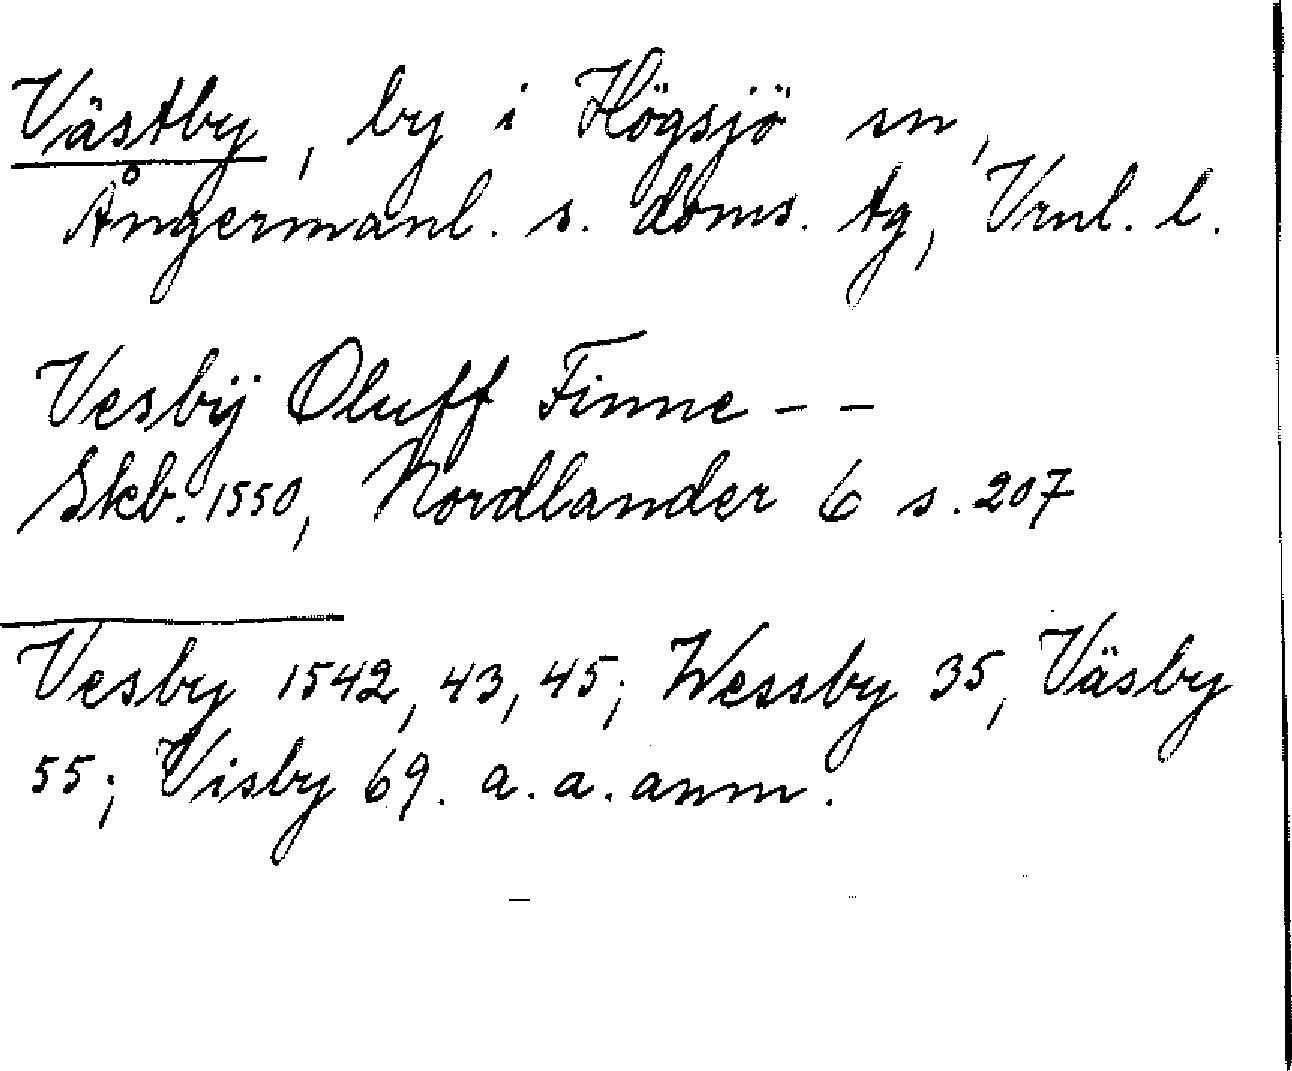 Västby, by i Högsjö sn,
Ångermanl. s. doms. tg, Vrnl. l.
Vesbÿ Oluff Finne - -
Skb. 1550, Nordlander 6 s. 207
Vesby 1542, 43, 45; Wessby 35, Väsby
55; Visby 69. a. a. anm.